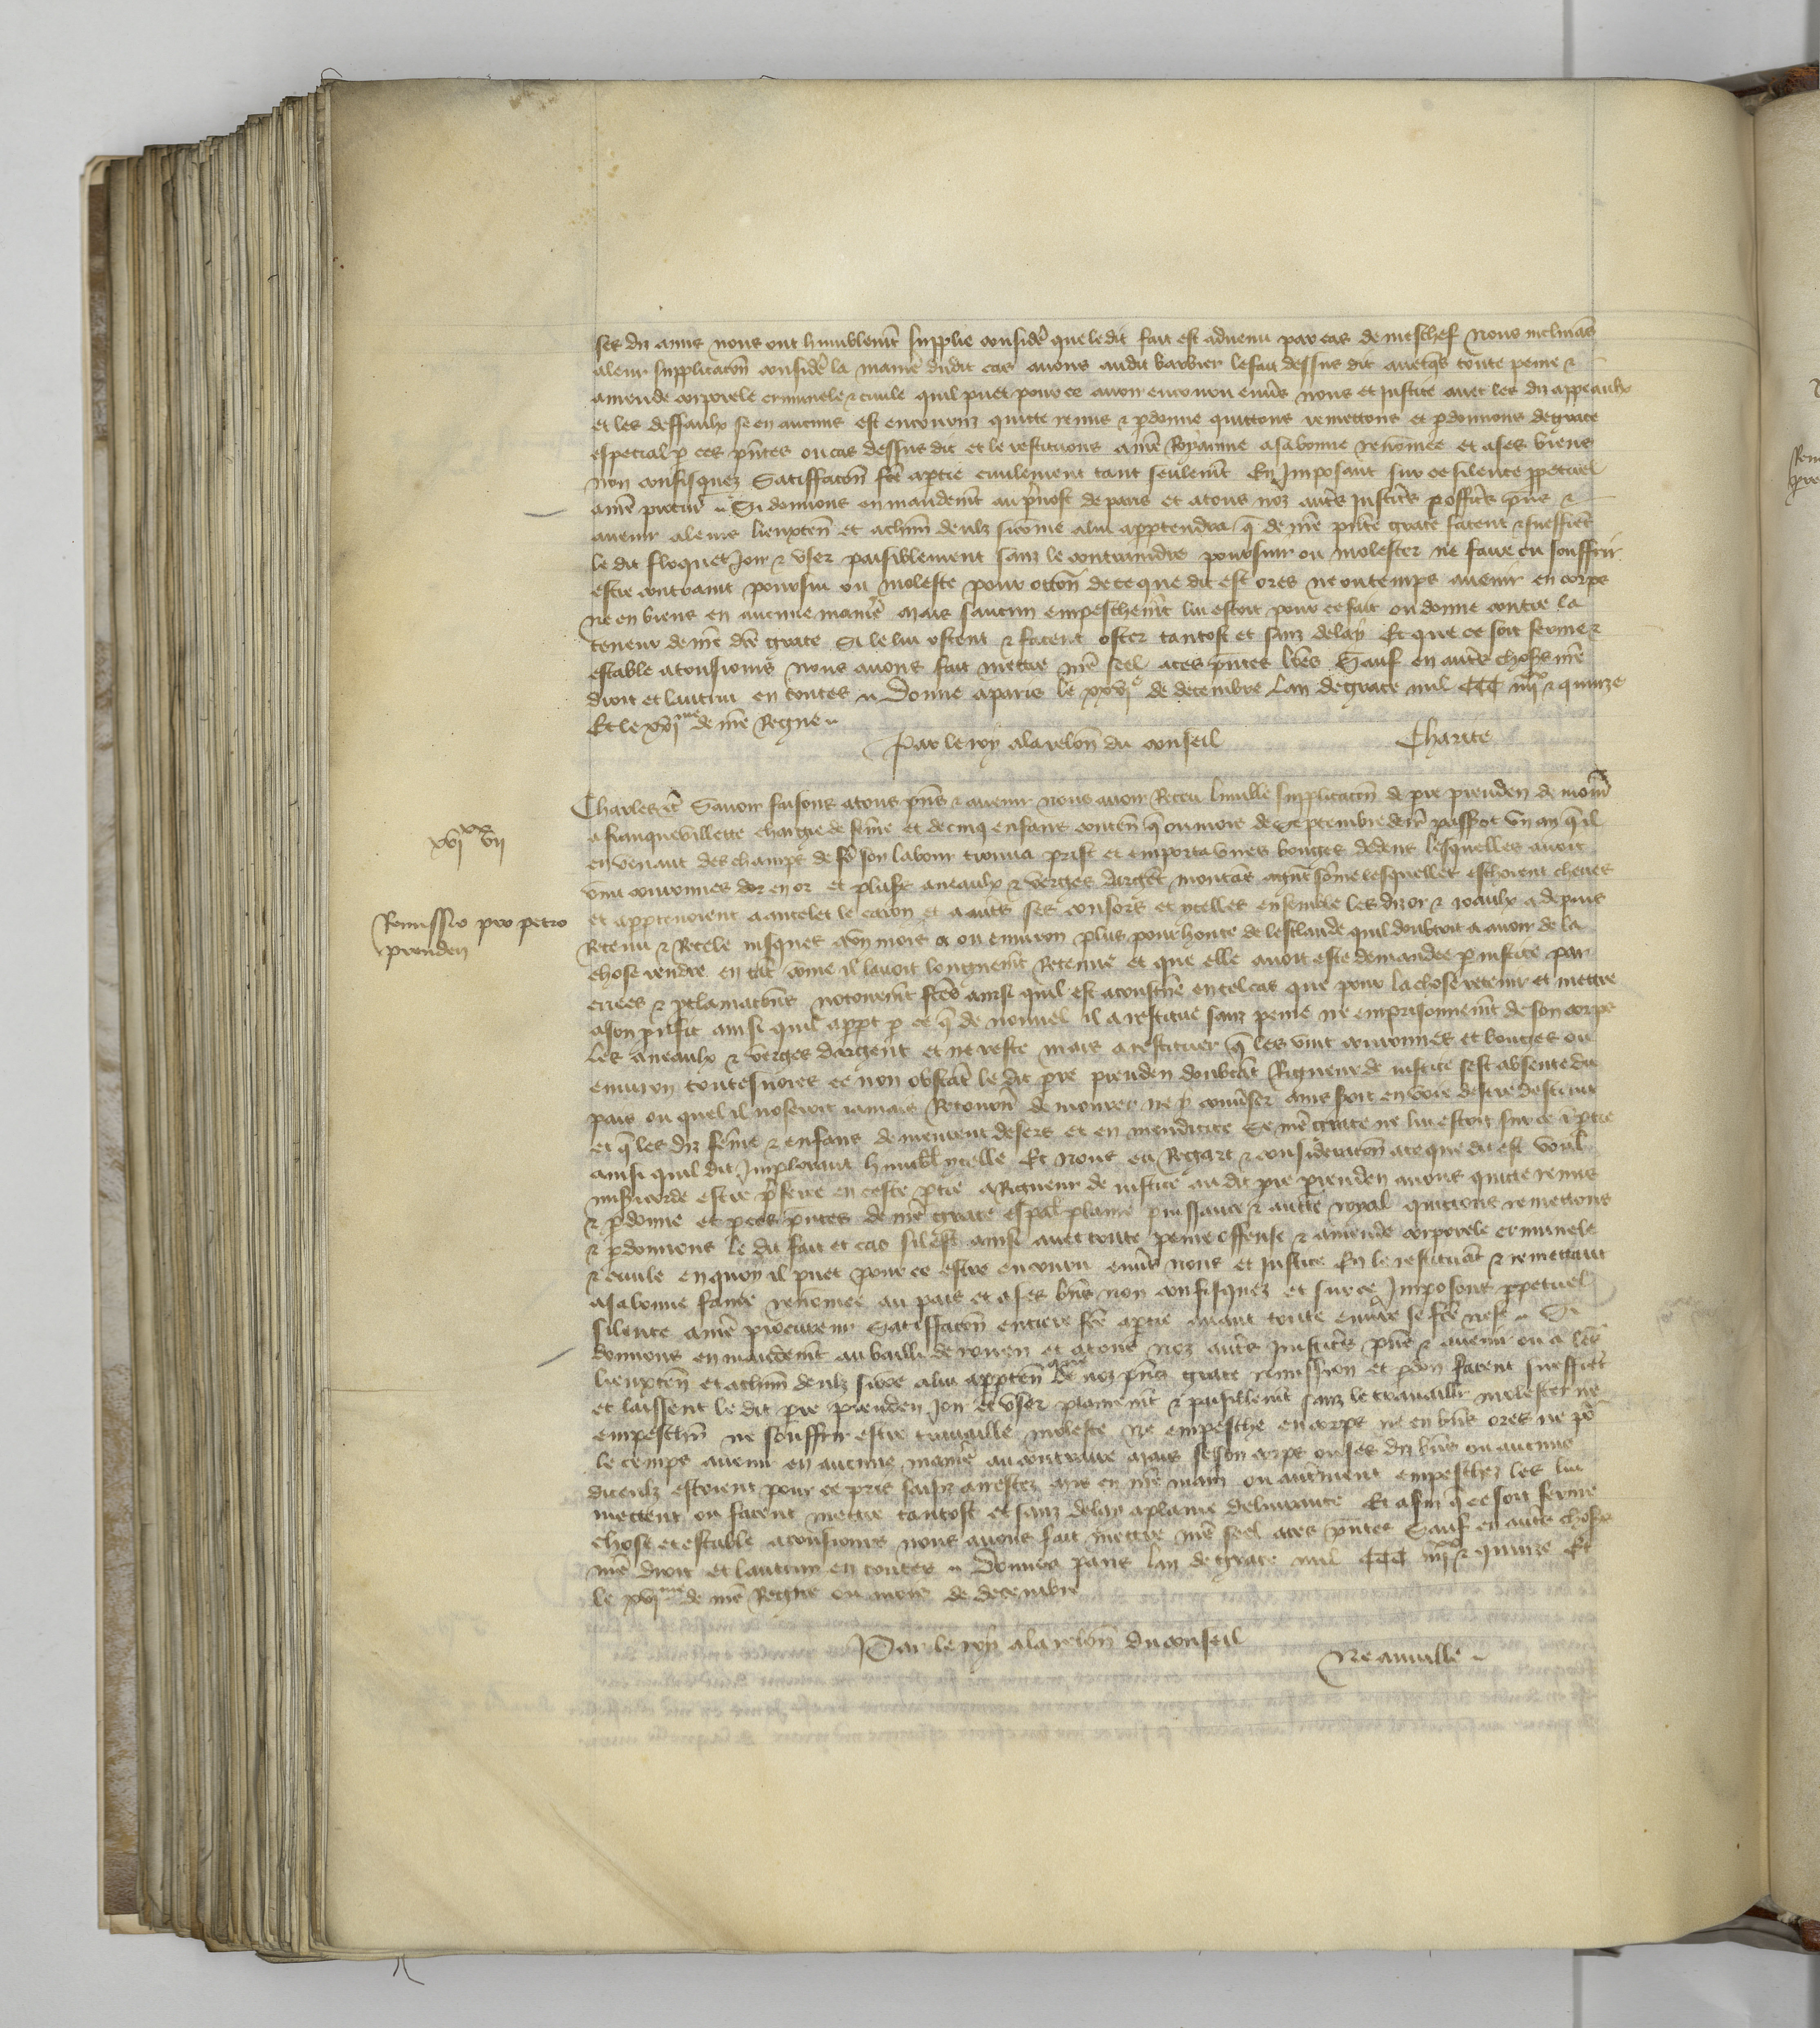 ses diz amis nous ont humblemt supplie consideré que ledit fait est advenu par cas de meschef Nous inclinãs
a leur supplicacõn consideré la maniẽ dudit cas avons audit barbier le fait dessus dit avecq̃s toute peine &
amende corporele criminele & civile quil puet pour ce avoir encouru envs nous et justice avec les diz appeaulx
et les deffaulx se en aucuns est encouruz quicte remis & pdonne quictons remettons et pdonnons de grace
especial p ces pñtes ou cas dessus dit et le restituons a nrẽ Royaume a sa bonne renõmee et a ses biens
non confisquez Satisffacõn fcẽ a ptie civilement tant seulemẽt En Imposant sur ce silence ppetuel
a nrẽ procur̃ Si donnons en mandemt au pvost de paris et a tous noz autrs Justicrs & officrs pñs &
avenir a leurs lieuxten̄ et a chũn deulz sicõme a lui apptendra q̃ de nrẽ pñte grace facent & sueffrẽt
le dit floquet Joir & user paisiblement sanz le contraindre poursuir ou molester ne faire ou souffrir
estre contraint poursui ou moleste pour occõn de ce que dit est ores ne ou temps avenir en corps
ne en biens en aucune maniẽ Mais saucun empeschemt lui estoit pour ce fait ou donne contre la
teneur de nrẽ dcẽ grace Si le lui ostent & facent oster tantost et sanz delay Et que ce soit ferme &
estable a tousiours nous avons fait mettre nrẽ seel a ces pñtes lrẽs Sauf en autrs choses nrẽ
droit et lautrui en toutes Donne a paris le xxvie de decembre Lan de grace mil CCC iiiixx & quinze
Et le xvime de nrẽ Regne
Par le roy a la relõn du conseil Charite
Charles &c̃ Savoir faisons a tous pñs & avenir nous avoir Receu humble supplicacõn de pre prenden de
a franquevillette chargie de fem̃e et de cinq enfans conten̄ q̃ ou mois de Septembre denr̃ passe ot un an q̃ il
en venant des champs de fẽ son labour trouva prist et emporta unes bouges dedens lesquelles avoit
vint couronnes dor en or et plusrs aneaulx & verges dargẽt lesquelles
et apptenoient a et a autrs ses consors et ycelles ensemble les diz or & joaulx a depuis
Retenu & Recele jusques a un mois a ou environ plus pour honte de lesclande quil doubtoit a avoir de la
chose rendre en tãt cõme il lavoit longuemt Retenue et que elle avoit este demandee p justice par
criees & pclamacõns notoiremt fcẽs ainsi quil est acoustumé en tel cas que pour la chose retenir et mettre
a son pufit ainsi quil appt p ce q̃ de nouvel il a restitue sanz peine ne emprisonnemt de son corps
Les aneaulx & verges dargent et ne reste mais a restituer q̃ les vint couronnes et bouges ou
environ toutesvoies ce non obstãt le dit pre prenden doubtãt Rigueur de justice sest absente du
pais ou quel il noseroit jamais Retourñ demourer ne convserr ains soit en voie destre destruit
et q̃ les diz fem̃e & enfans demeurent desers et en mendicite Se nrẽ grace ne lui estoit sur ce
ainsi quil dit Implorant humblt ycelle Et Nous eu Regart & consideracõn a ce que dit est voul̃
misericorde estre pferee en ceste ptie a Rigueur de justice au dit pre prenden avons quicte remis
& pdonne et p ces pñtes de nrẽ grace espal plaine puissance & auctẽ royal quictons remettons
& pdonnons le dit fait et cas sil est ainsi avec toute peine offense & amende corporele criminele
& civile en quoy il puet pour ce estre encouru envs nous et Justice En le restituãt & remettant
a sa bonne fame renõmee au pais et a ses bñs non confisquez et sur ce Imposons ppetuel
silence a nrẽ procureur Satisffacõn entiere fcẽ a ptie avant toute euvre se fcẽ nest Si
donnons en mandemt au bailli de rouen et a tous noz autrs Justicrs pñs & avenir ou a lrs̃
lieuxten̄ et a chũn deulz sicõe a lui apptẽn de noz pñs grace remission et pdon facent sueffrẽt
et laissent le dit pre prenden Joir et user plainemt & paisiblemt sanz le travaillr molester ne
empeschr̃ ne souffrir estre travaille moleste ne empeschie en corps ne en bñs ores ne pr
le temps avenir en aucune maniẽ au contraire Mais se son corps ou ses diz bñs ou aucuns
diceulz estoient pour ce pris saisiz arrestez mis en nrẽ main ou autrmt empeschez les lui
mettent ou facent mettre tantost et sanz delay a plaine delivrance Et afin q̃ ce soit ferme
chose et estable a tousiours nous avons fait mettre nrẽ seel a ces pñtes Sauf en autrs choses
nrẽ droit et lautrui en toutes Donne a paris lan de grace mil CCC iiiixx & quinze Et
le xvime de nrẽ Regne ou mois de decembre
Par le roy a la relõn du conseil
Neauville
xvixx vii
Remissio pro petro
prenden